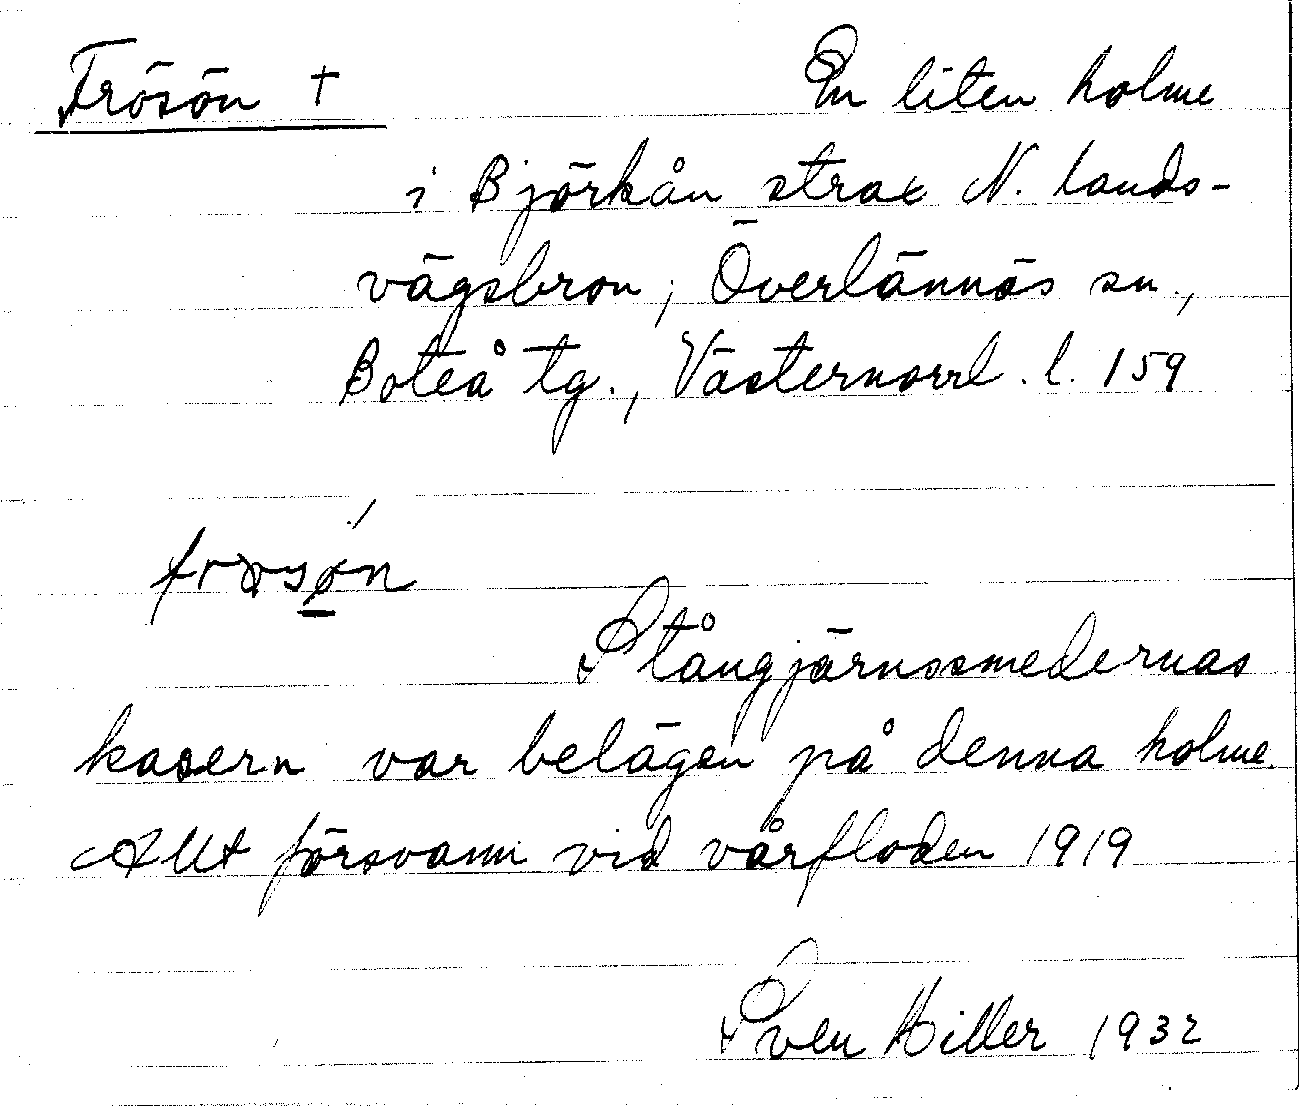 Frösön † En liten holme
i Björkån strax N. lands-
vägsbron, Överlännäs sn.,
Boteå tg., Västernorrl. l. 159
frøsøn
Stångjärnssmedernas
kasern var belägen på denna holme.
Allt försvann vid vårfloden 1919
Sven Hiller 1932